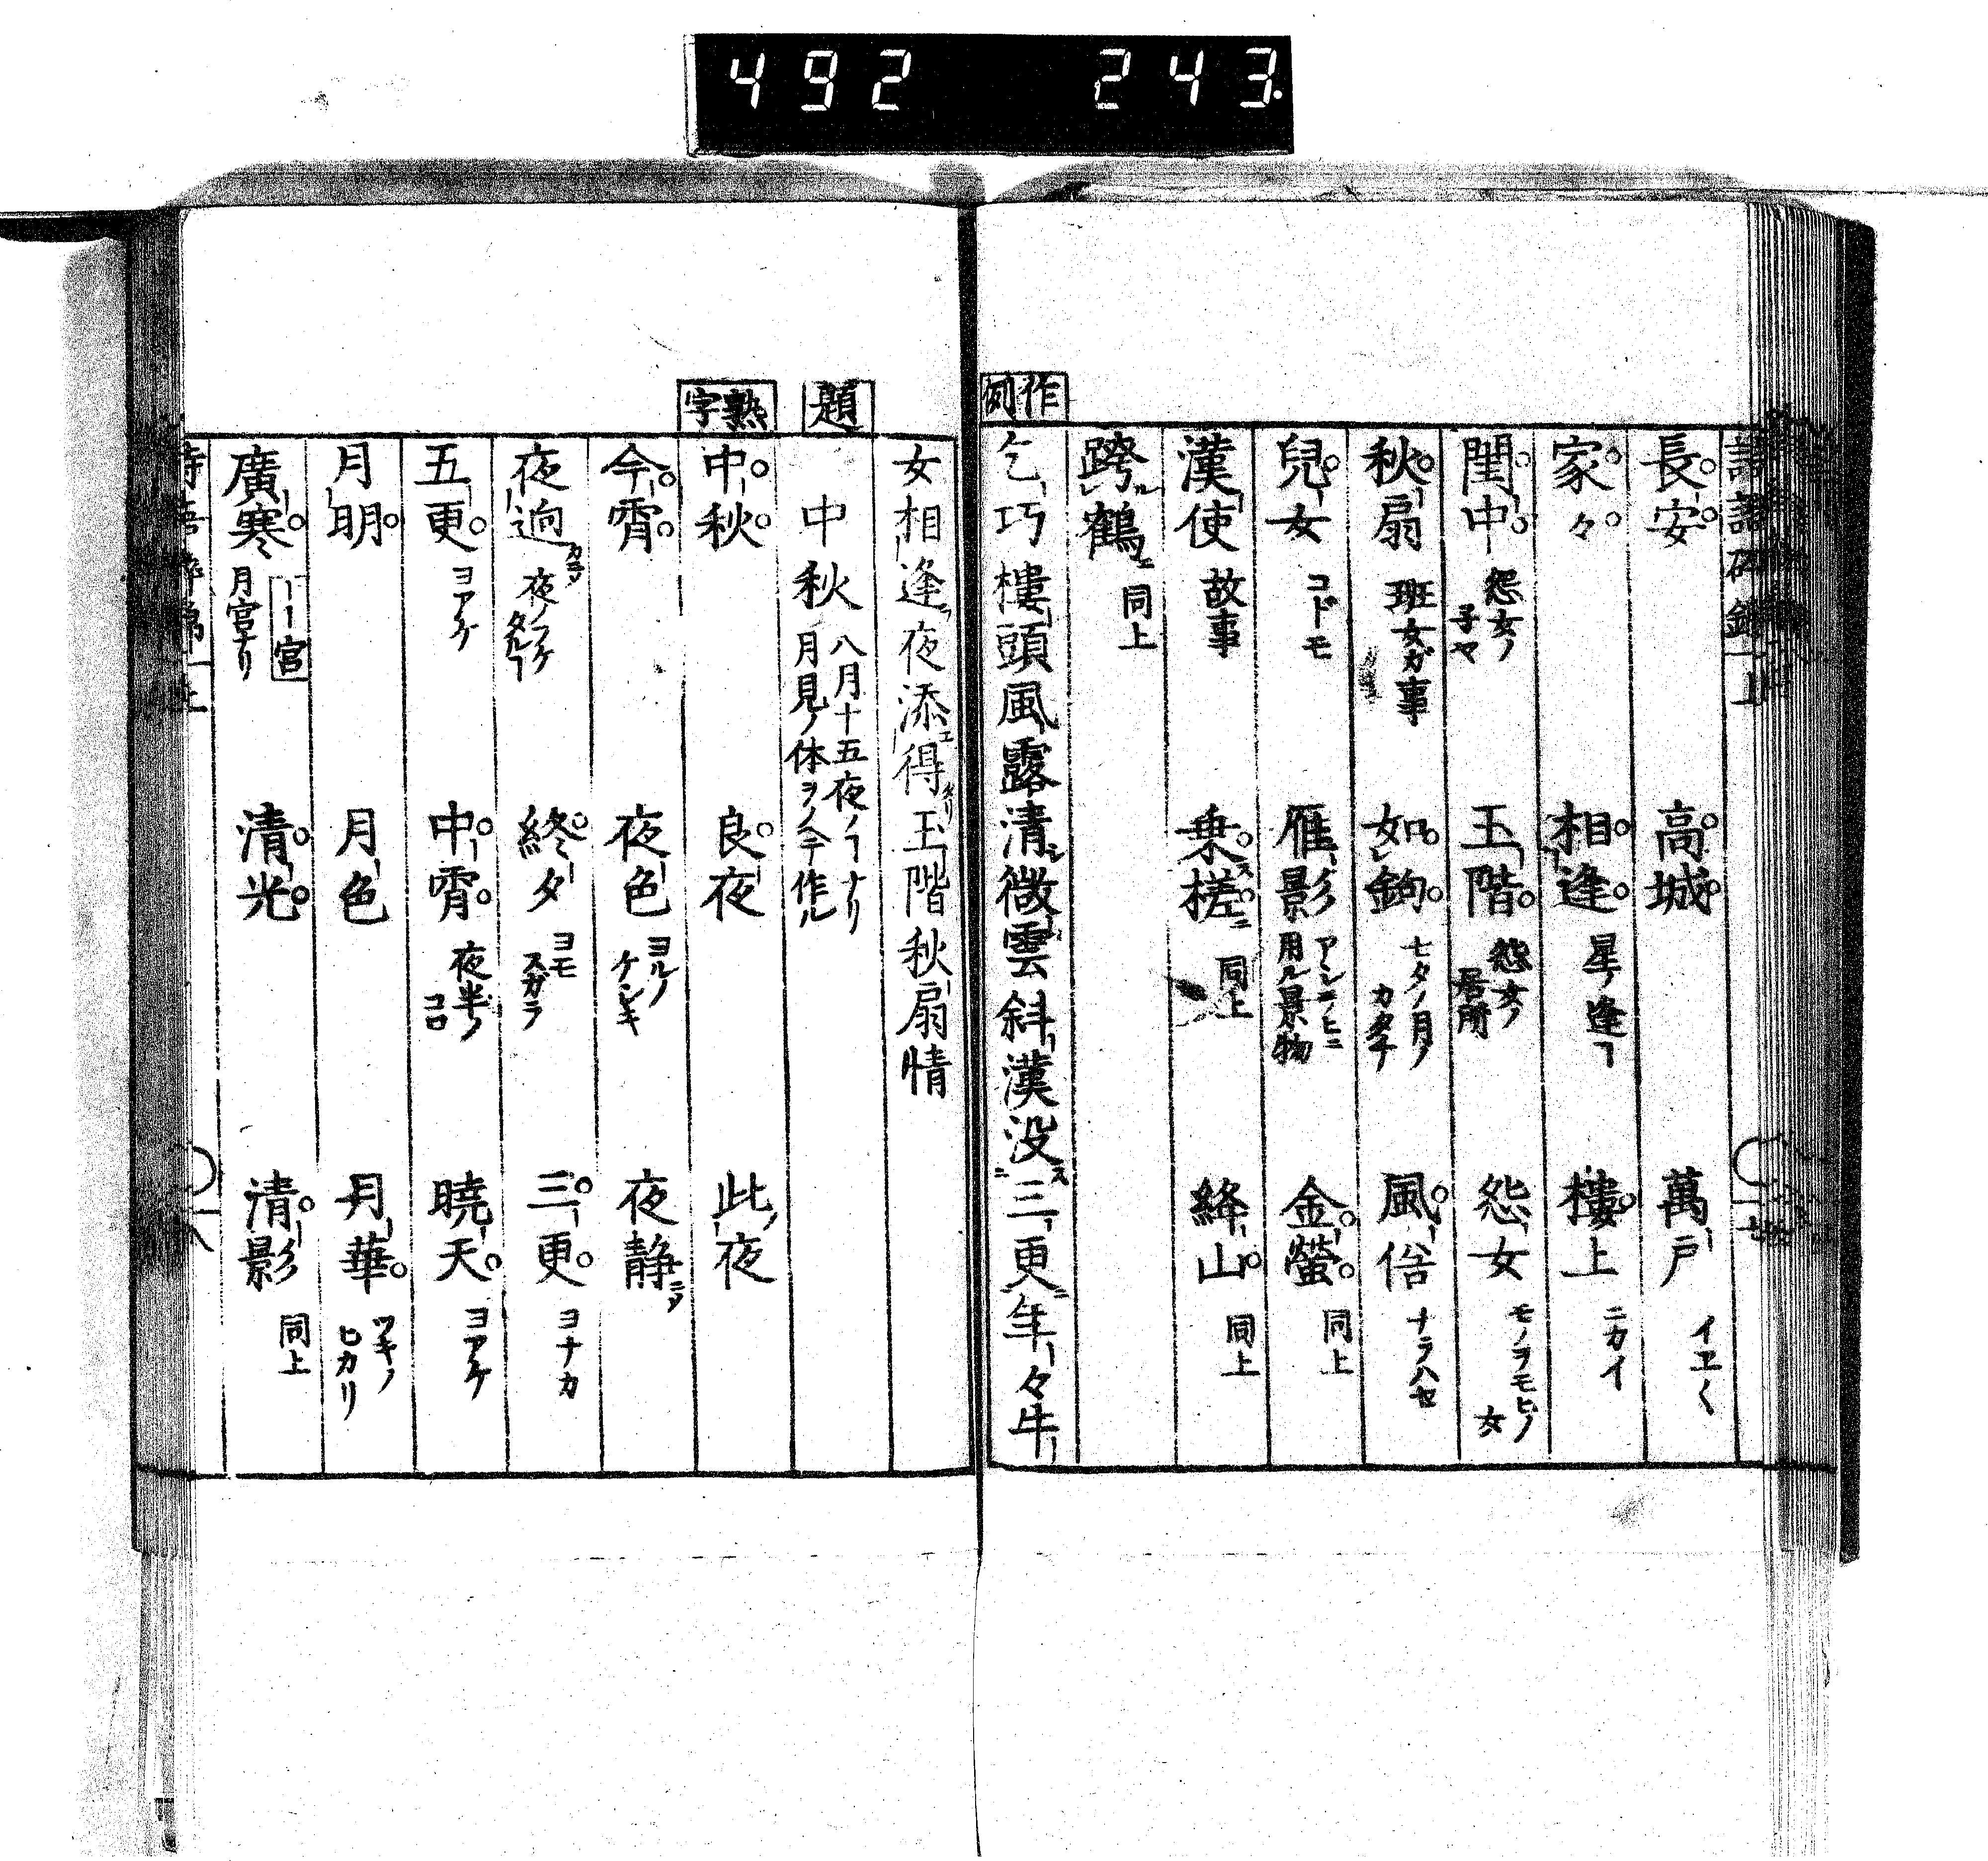 492 243
長安 高城 萬戸 イヱ〱
家々 相逢 星ノ逢フ 樓上 ニカイ
閨中 怨女ノ子ヤ 玉階 怨女ノ居所 怨女 モノヲモヒノ女
秋扇 班女ガ事 如鉤 七夕ノ月ノカタチ 風俗 ナラハセ
兒女 コドモ 雁影 用ル景物 金螢 同上
漢使 故事 乗槎 同上 絳山 同上
跨鶴 同上
作例
乞巧樓頭風露清微雲斜漢没三更年々牛
女相逢夜添得玉階秋扇情
題
中秋 八月十五夜ノヿナリ月見ノ体ヲノ今作ル
熟字
中秋 良夜 此夜
今霄 夜色 ヨルノケシキ 夜静
夜逈 夜ノフケタルヿ 終夕 ヨモスガラ 三更 ヨナカ
五更 ヨアケ 中霄 夜半ノコロ 曉天 ヨアケ
月明 月色 月華 ツキノヒカリ
廣寒 ーー宮 月宮ナリ 清光 清影 同上